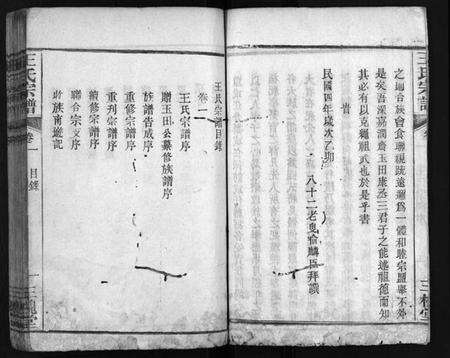 之廸合族會食聯視疏遠為一體和睦宗盟舉不外
是矣吾深嘉潤齋玉田康丞三君子之能述祖德而知
其必有以克繩祖武也於是乎書
峕
民國四年歲次乙卯
八十二老叟 麟臣拜譔
王氏宗譜
王氏宗譜目錄
卷一
王氏宗譜序
贈玉田公纂修族譜序
族譜告成序
重修宗譜序
重刋宗譜序
續修宗譜序
聯合宗支序
王氏宗譜
卷一
目錄
三槐堂